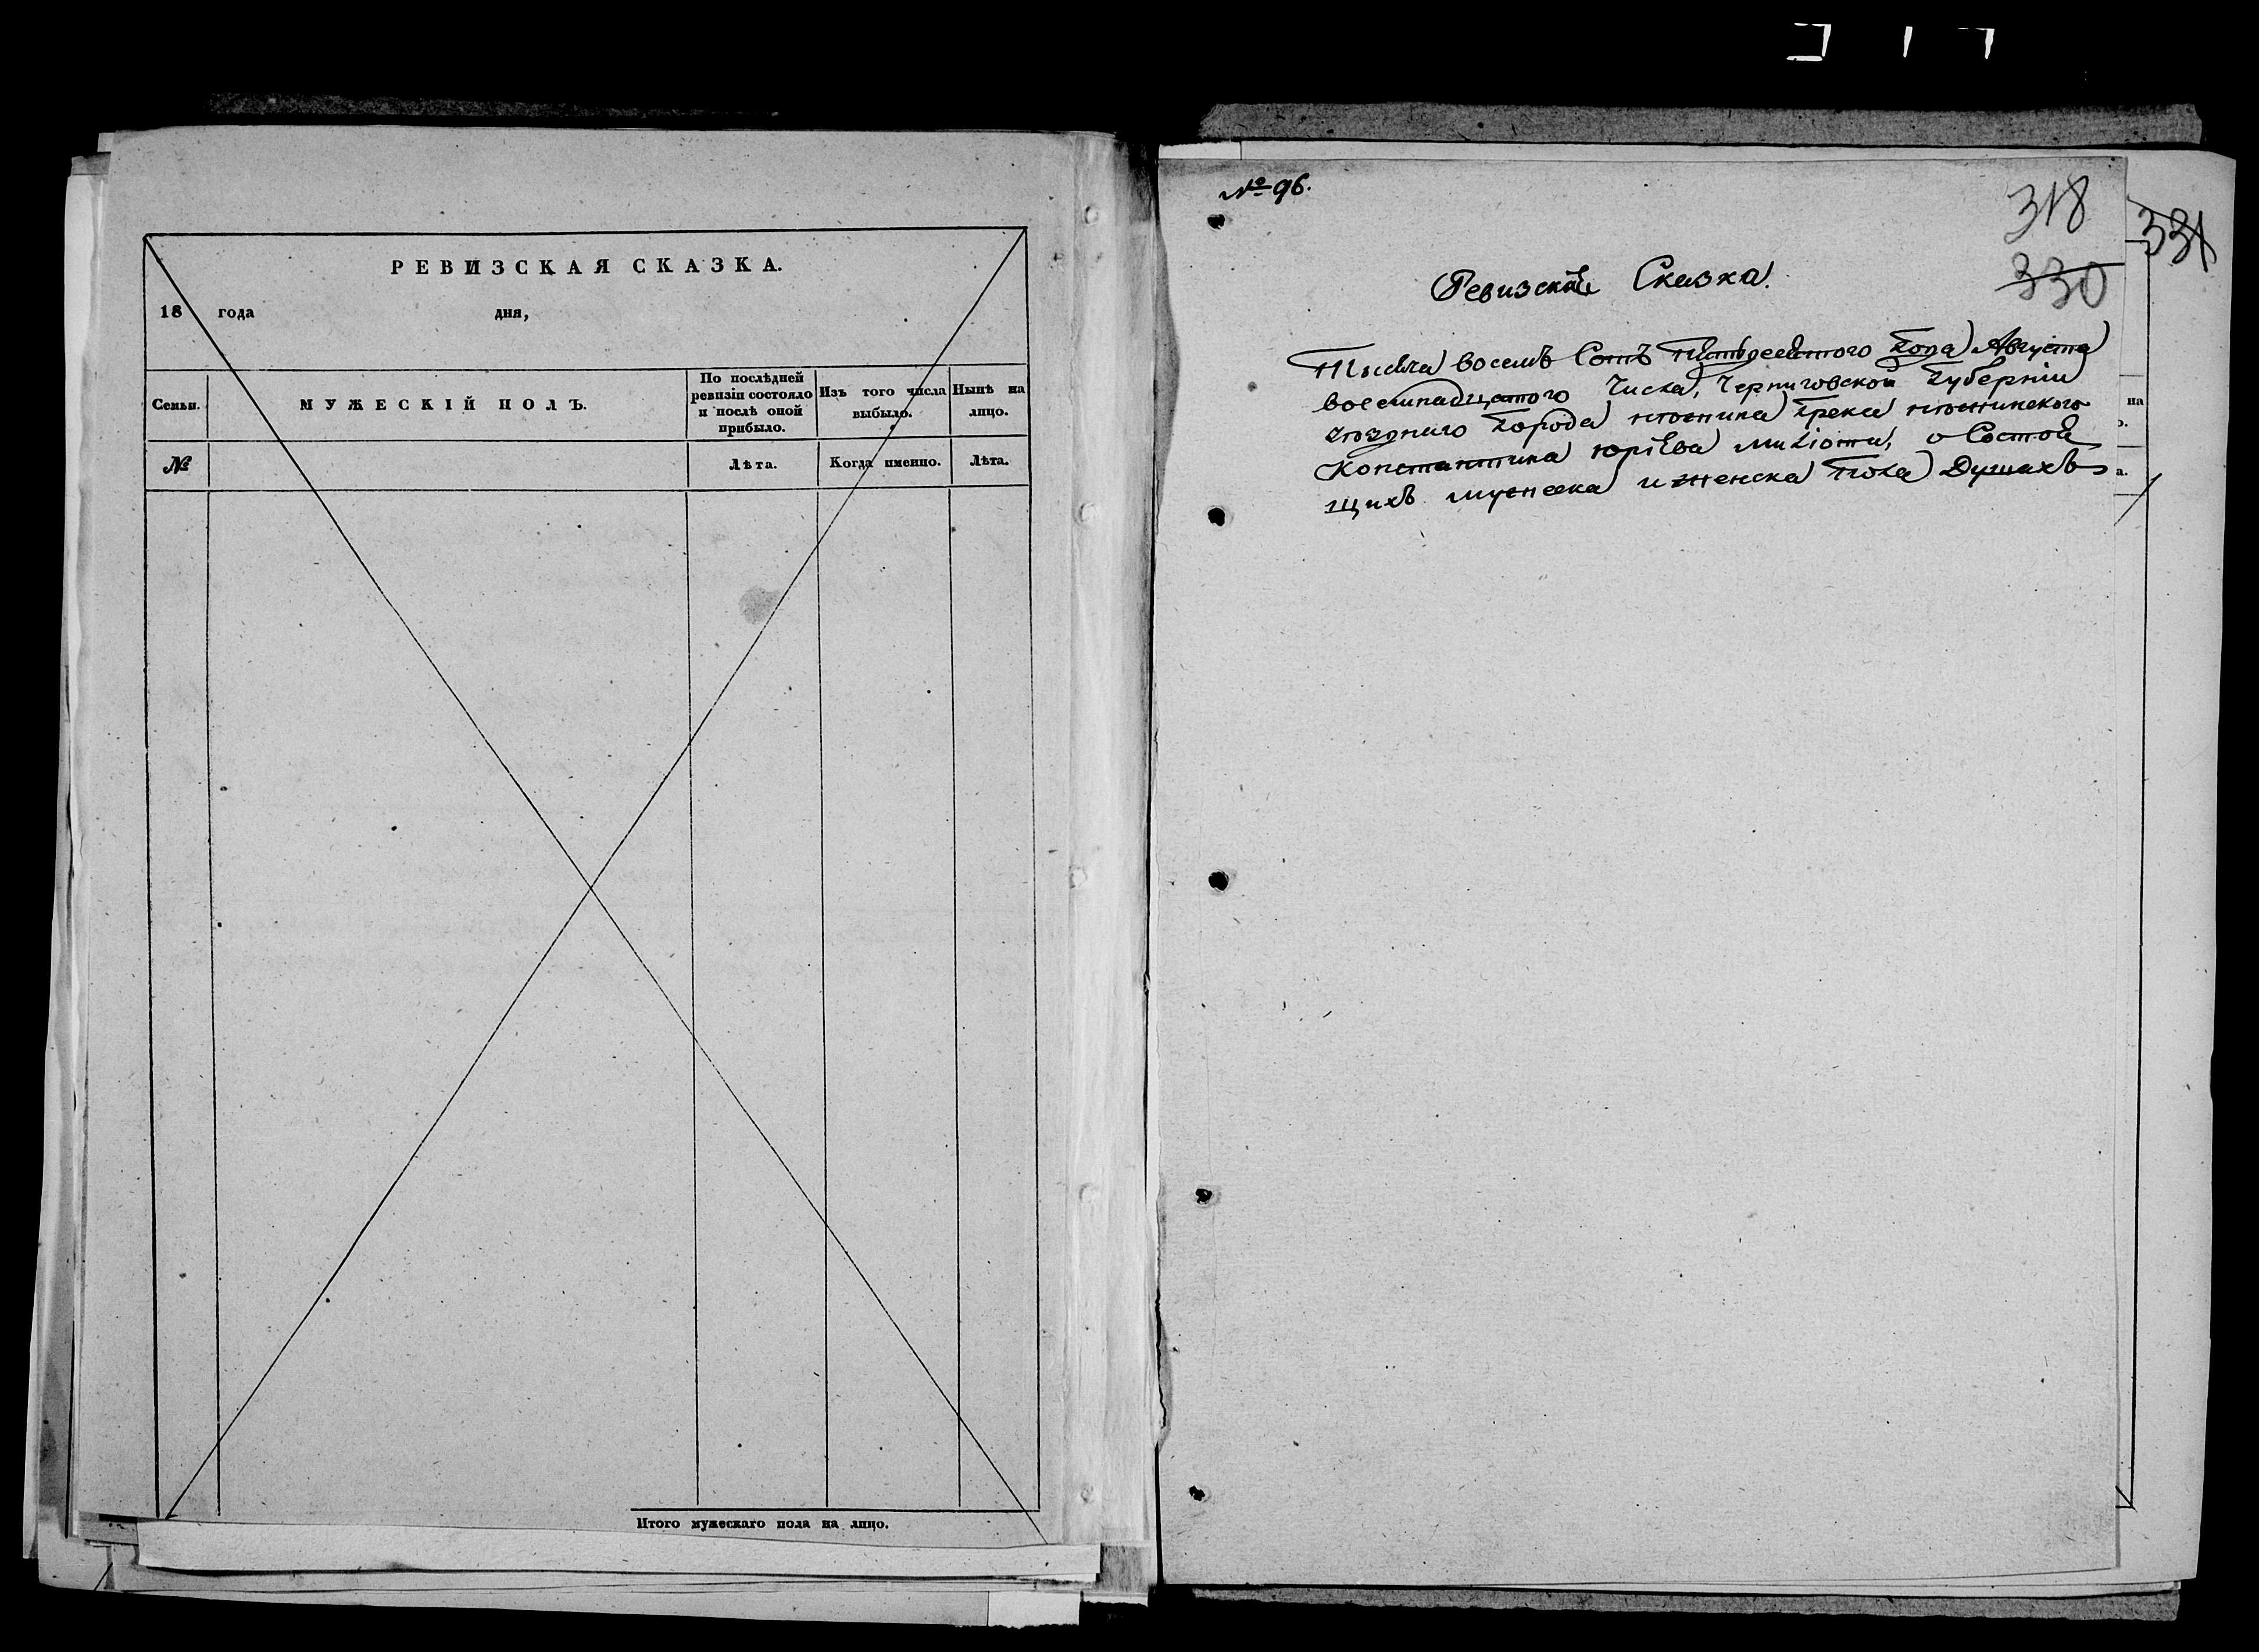 РЕВИЗСКАЯ СКАЗКА.
18 года дня,
Семьи.
МУЖЕСКІЙ ПОЛЪ.
По послѣдней ревизіи состояло и послѣ оной прибыло.
Изъ того числа выбыло.
Нынѣ на лицо.
№
Лѣта.
Когда именно.
Лѣта.
Итого мужескаго пола на лицо.
№ 96.
318
330
331
Ревизская Сказка.
Тысяча восемь Сотъ пятьдесятого Года Августа
восемнадцатого Числа, Черниговской Губерніи
уѣзднаго Города Нѣжина Грека нѣжинского
Константина Юрiева Милiоти, о Состоя
щихъ мужеска и женска Пола Душахъ
на
ъ.
а.